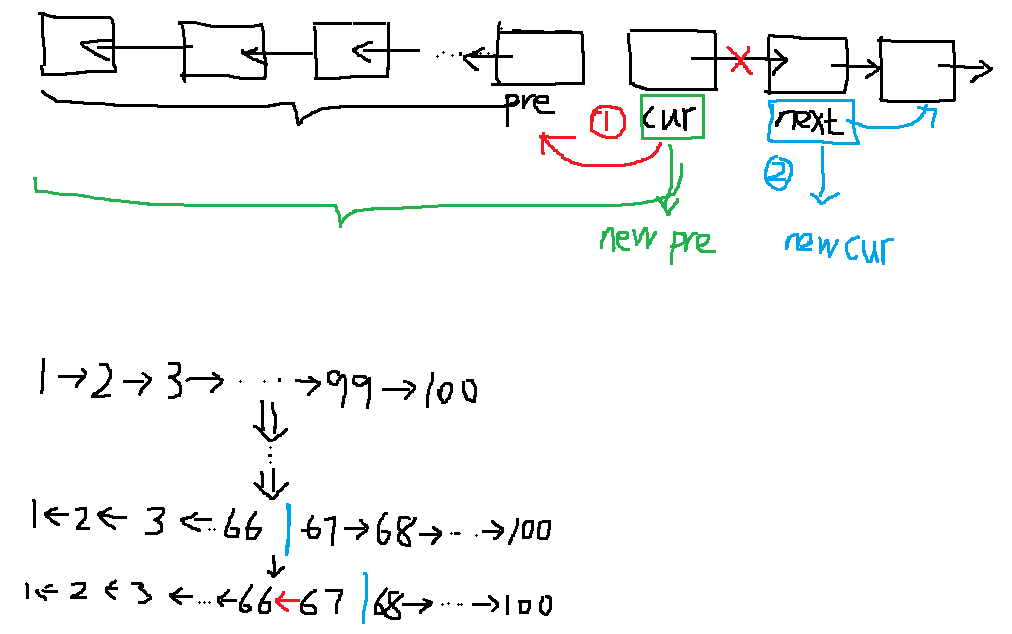 pre ① cur next
②
new pre new cur
1 → 2 → 3 → ... → 99 → 100
1 ← 2 ← 3 ← ... 66 | 67 → 68 → ... → 100
1 ← 2 ← 3 ← ... ← 66 ← 67 | 68 → ... → 100